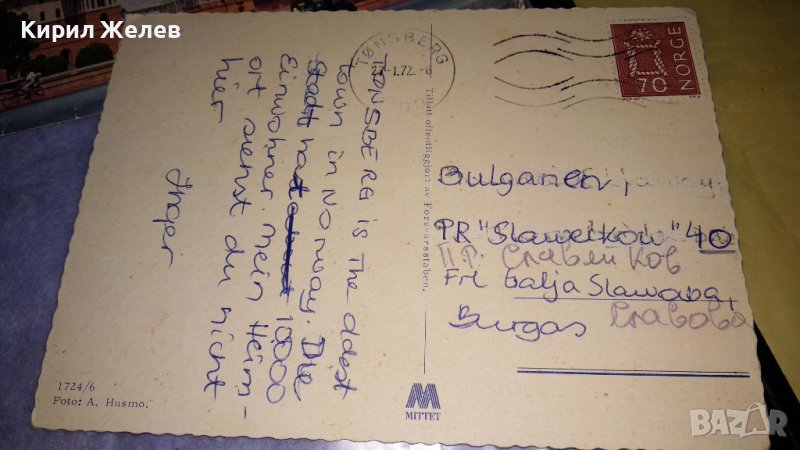 Кирил Желев
TØNSBERG is The oldest
town in Norway. The
Stadt hat about 10000
Einwohner. Mein Heim-
ort siehst du nicht
hier
Inger
1724/6
Foto: A. Husmo.
Tillatt offentliggjort av Forsvarsstaben.
MITTET
TØNSBERG
27-1.72.
70 NORGE
Bulgarien,
PR "Slaweikow" 40
П.Р. Славейков
Frl Galja Slawowa,
Burgas Славова
BAZAR